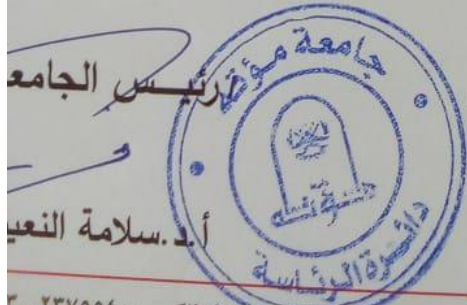 رئيس الجامعـ
أ.د.سلامة النعيـ
جامعة مؤتة
مؤتة
دائرة الرئاسة